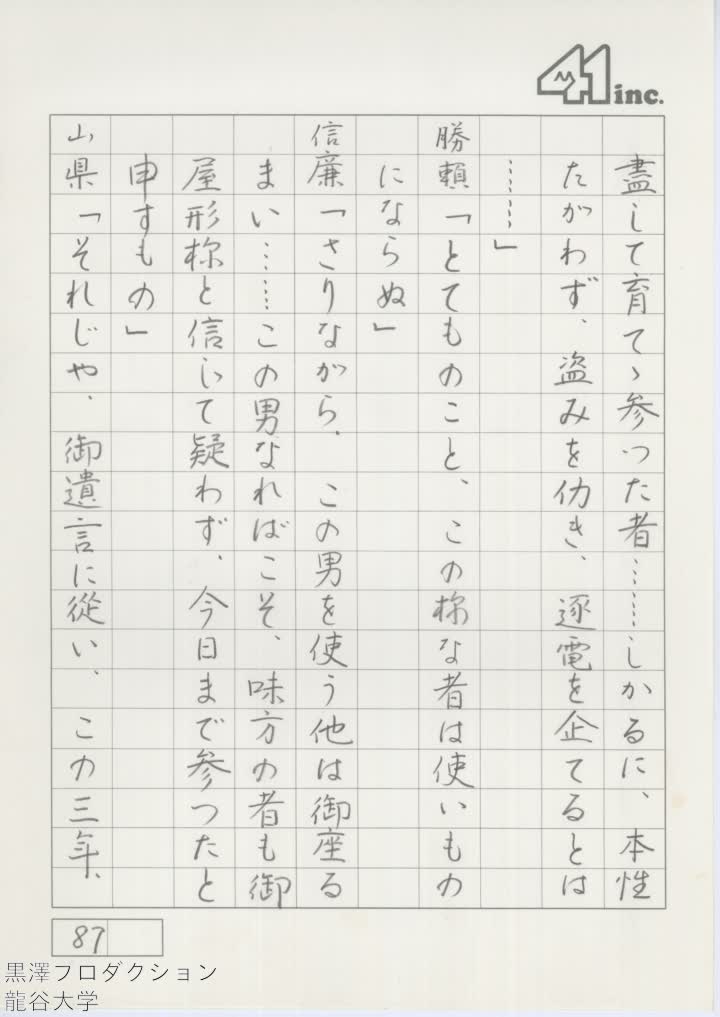 41 inc.
盡して育てゝ参つた者……しかるに、本性
たがわず、盗みを仂き、逐電を企てるとは
……」
勝頼「とてものこと、この様な者は使いもの
にならぬ」
信廉「さりながら、この男を使う他は御座る
まい……この男なればこそ、味方の者も御
屋形様と信じて疑わず、今日まで参つたと
申すもの」
山県「それじや、御遺言に従い、この三年、
87
黒澤プロダクション
龍谷大学